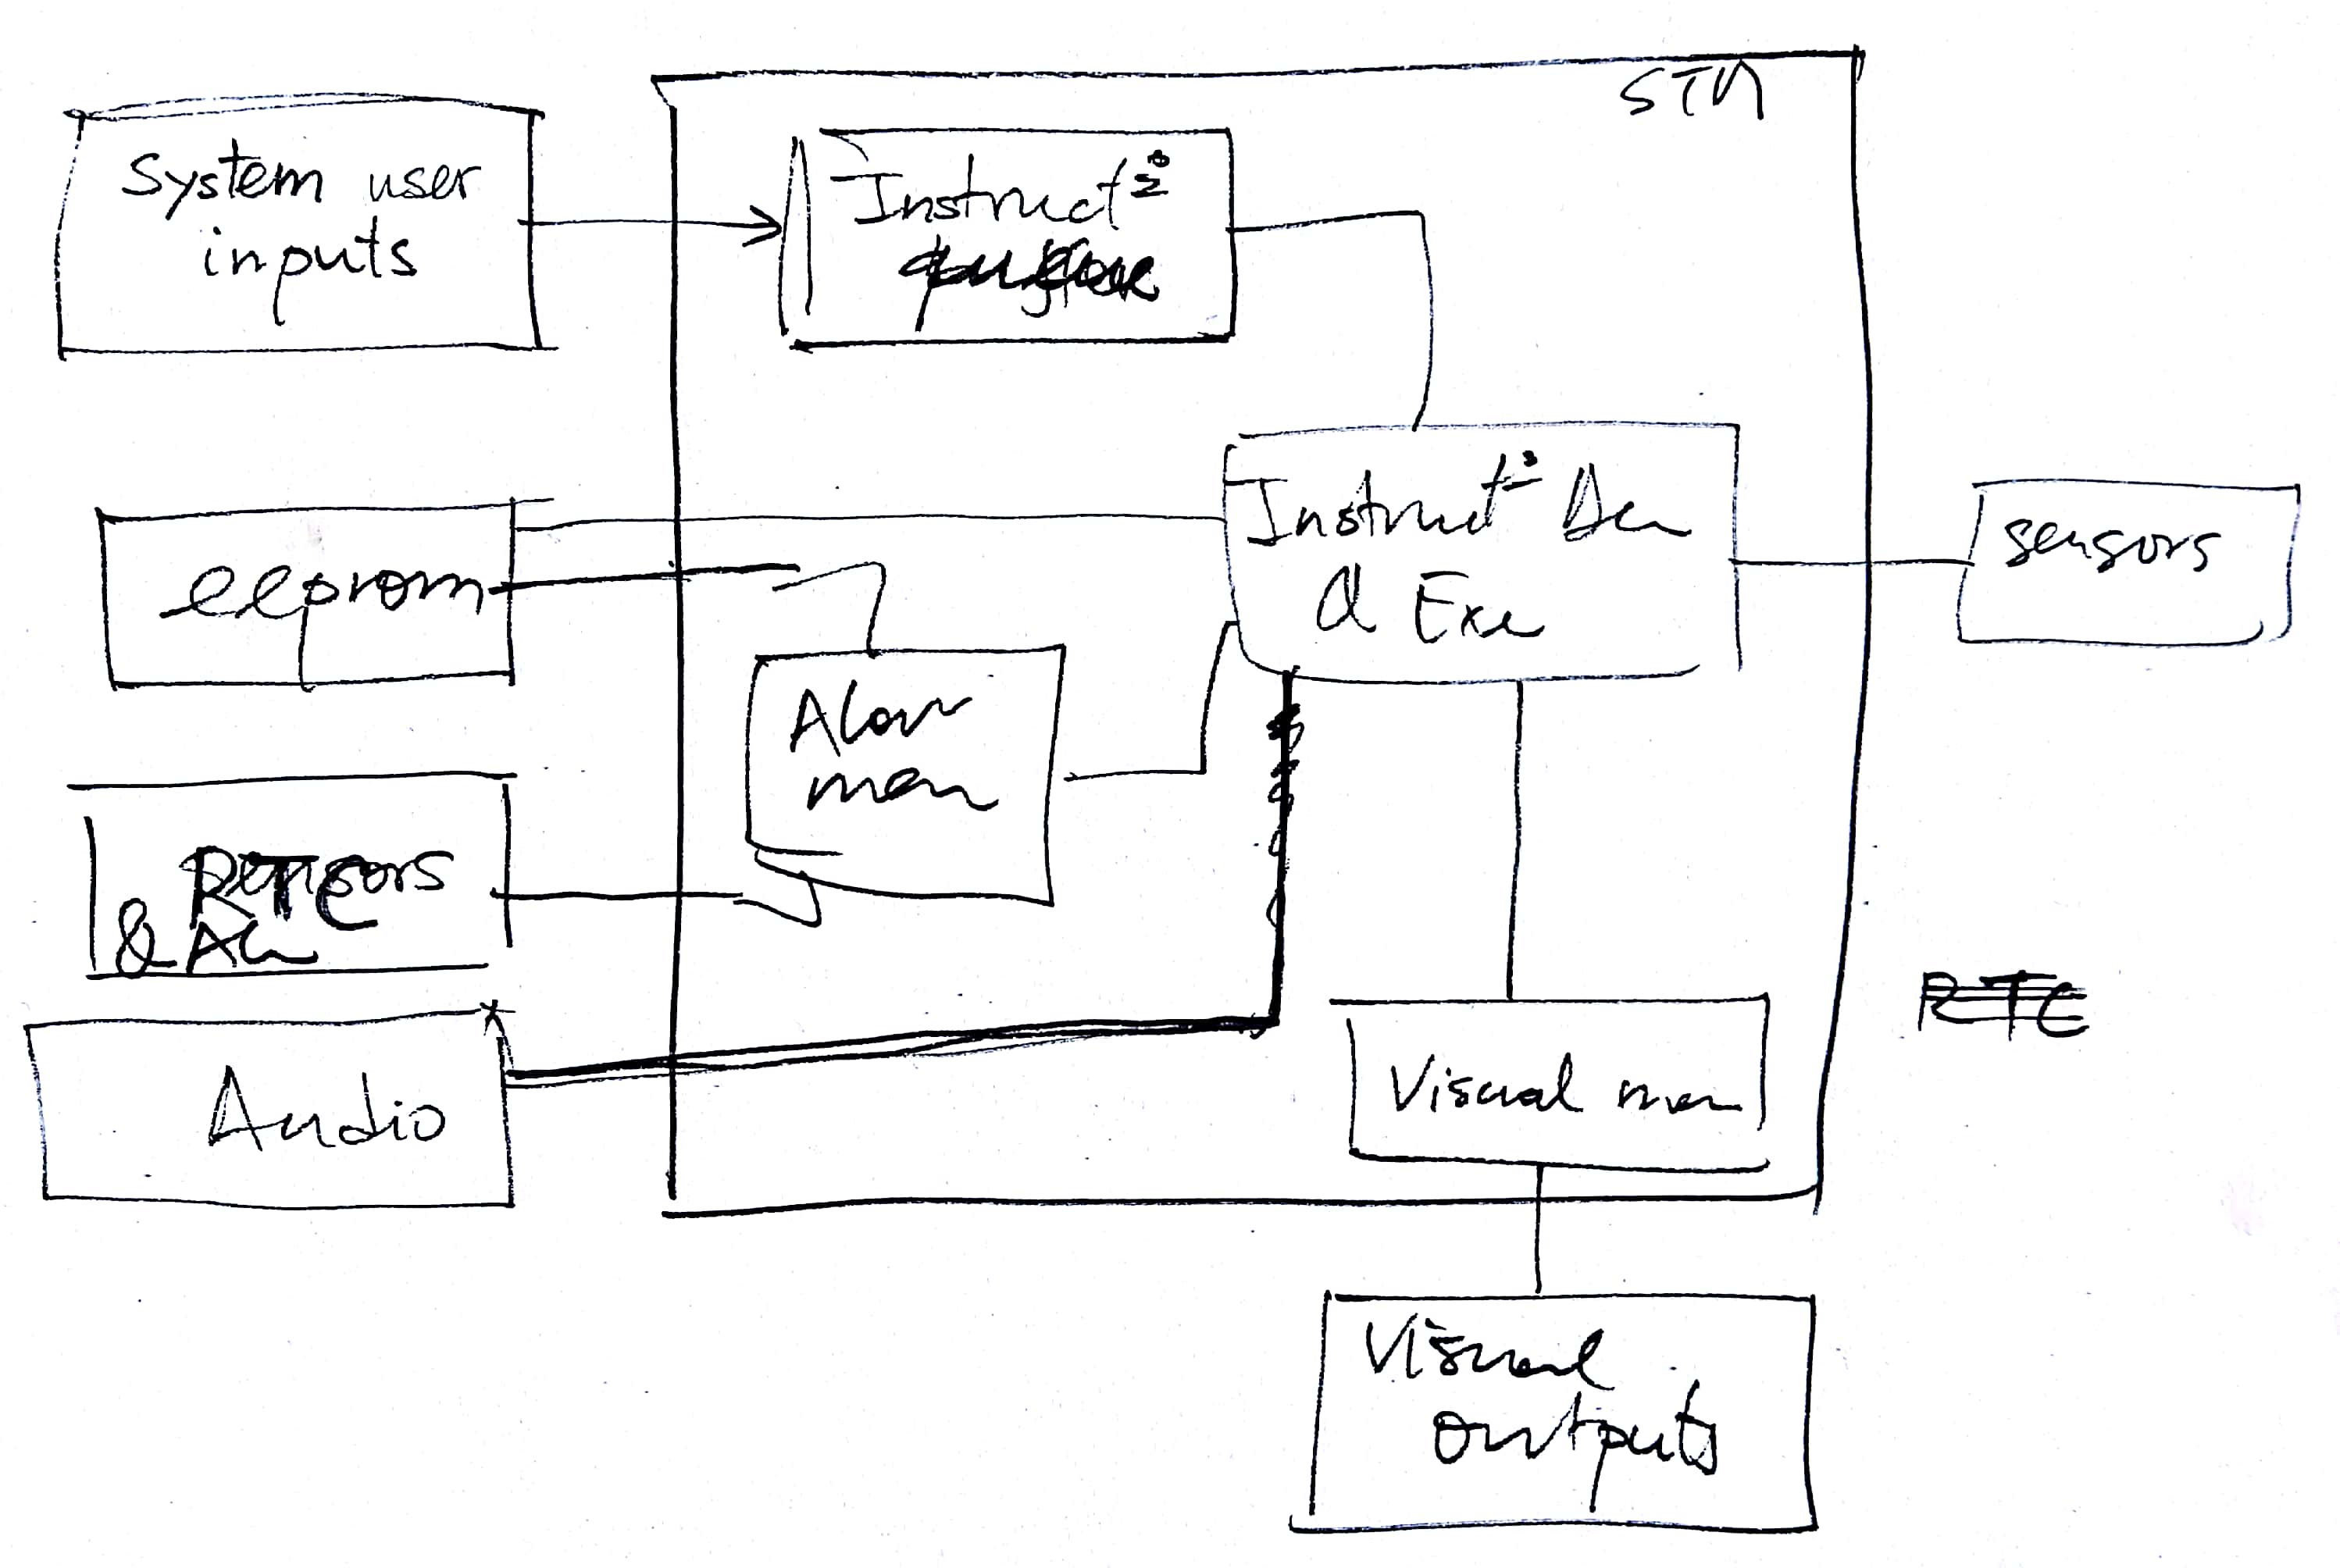 STM
System user
inputs
Instruct⁰
eeprom
Instruct⁰ Dec
& Exe
sensors
Alarm
man
RTC
&
Audio
Visual man
RTC
Visual
outputs